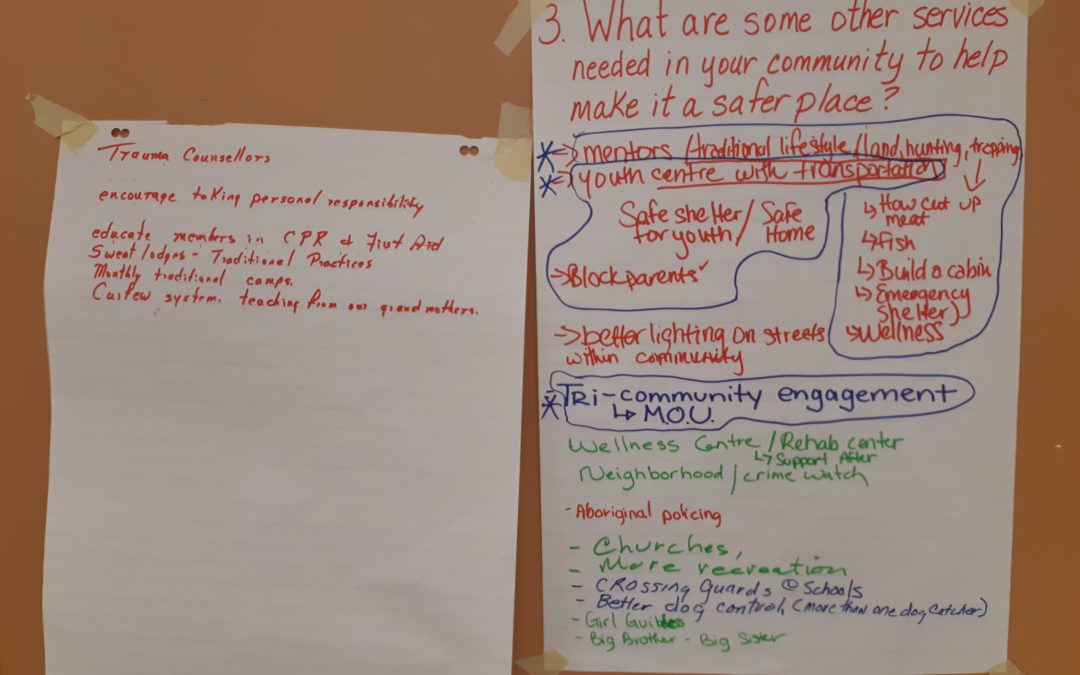 Trauma Counsellors
encourage taking personal responsibility
educate members in CPR & First Aid
Sweat lodges - Traditional Practices
Monthly traditional camps.
Curfew system. teaching from our grandmothers.
3. What are some other services
needed in your community to help
make it a safer place?
* → mentors / traditional lifestyle / land, hunting, trapping
* → youth centre with transportation
Safe shelter / Safe
for youth / Home
→ Block parents ✓
↳ How cut up
meat
↳ fish
↳ Build a cabin
↳ Emergency
Shelter
↳ Wellness
→ better lighting on streets
within community
* - TRi-community engagement
↳ M.O.U.
Wellness Centre / Rehab center
↳ Support After
Neighborhood / crime watch
- Aboriginal policing
- Churches,
- More recreation
- CROSSING Guards @ Schools
- Better dog control, (more than one dog catcher)
- Girl Guides
- Big Brother - Big Sister